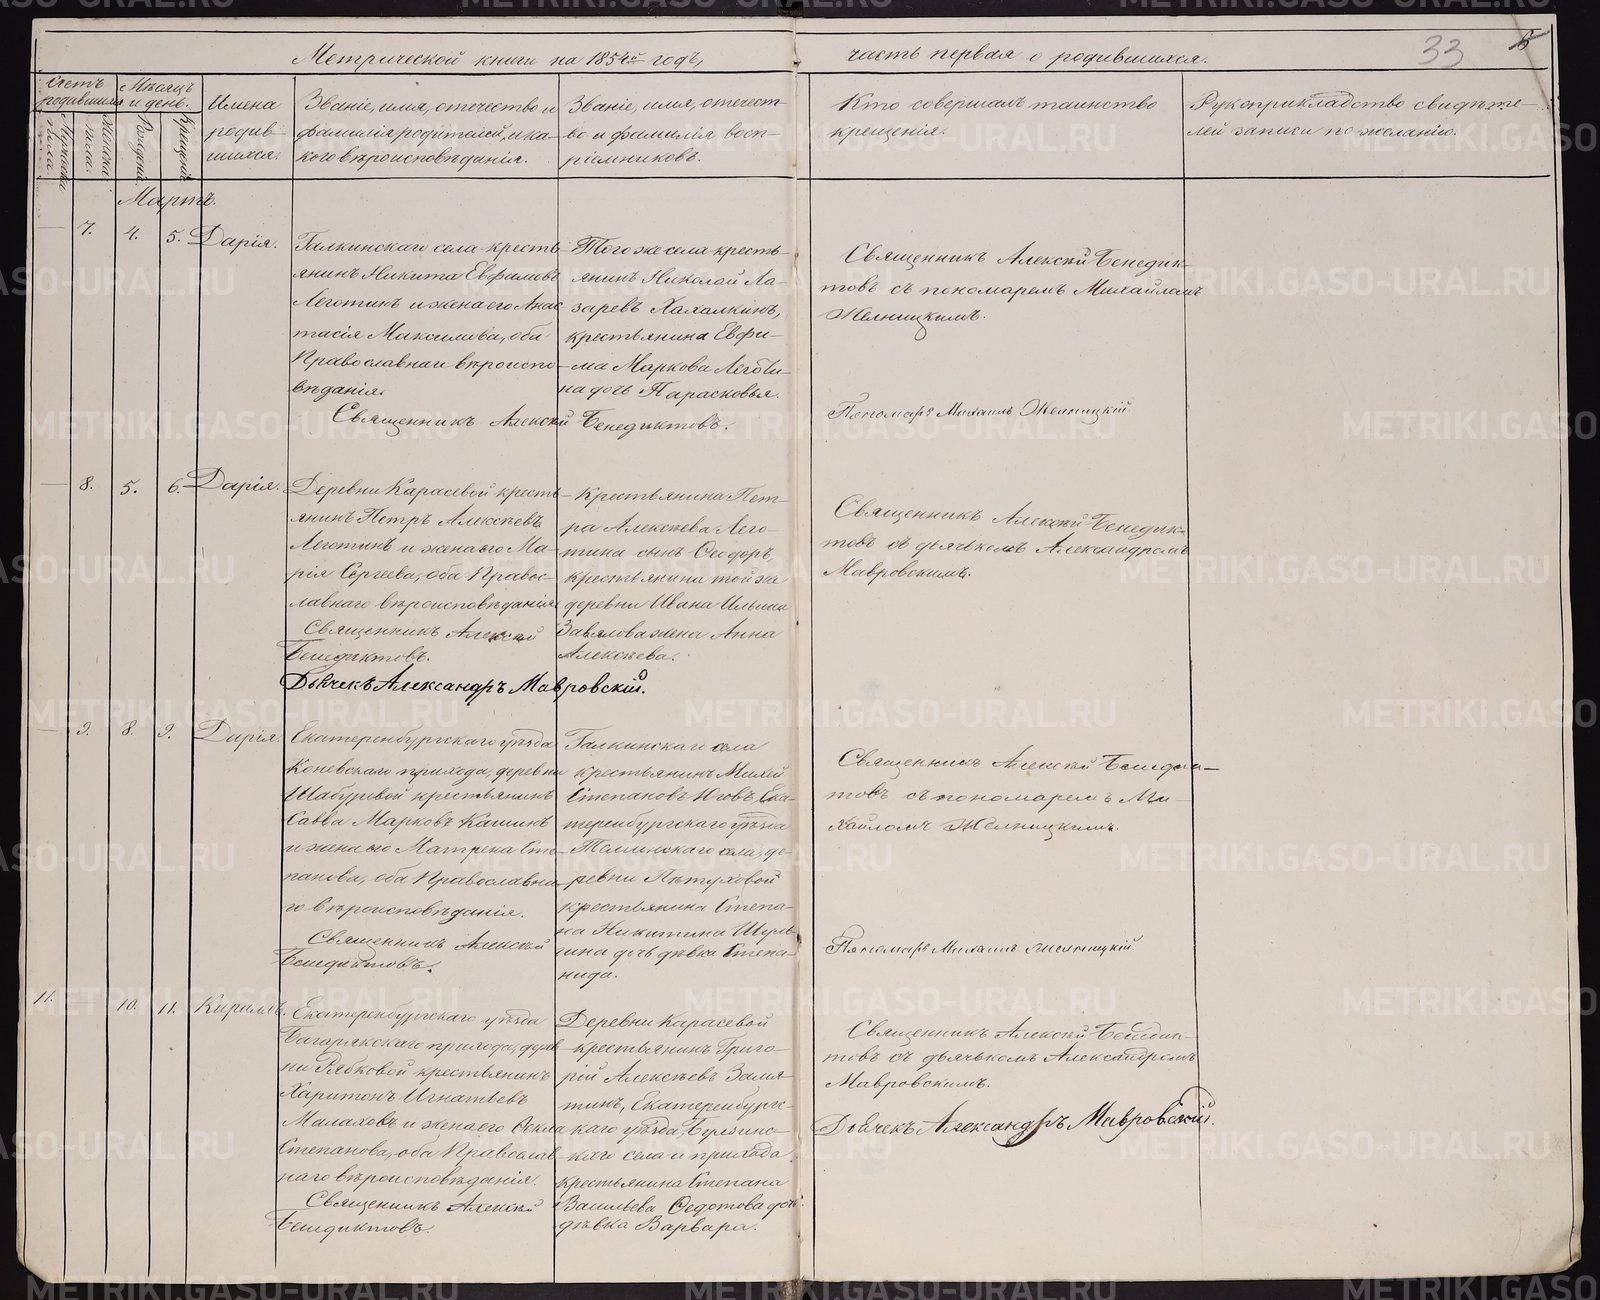 Метрической книги на 1854й годъ,
часть первая о родившихся.
33
Счетъ родившихся
Мѣсяцъ и день.
Мужеска пола.
Женска пола.
Рожденія.
Крещенія.
Имена
родив-
шихся.
Званіе, имя, отечество и
фамилія родителей, и ка-
кого вѣроисповѣданія.
Званіе, имя, отечест-
во и фамилія восп-
ріемниковъ.
Кто совершалъ таинство
крещенія.
Рукоприкладство свидѣте-
лей записи по желанію.
Мартъ.
7. 4. 5. Дарія.
Галкинскаго села кресть-
янинъ Никита Евфимовъ
Леготинъ и жена его Анас-
тасія Максимова, оба
Православнаго вѣроиспо-
вѣданія.
Того же села кресть-
янинъ Николай Ла-
заревъ Хахалкинъ,
крестьянина Евфи-
ма Маркова Леготи-
на дочь Парасковья.
Священникъ Алексѣй Бенедиктовъ.
Священникъ Алексѣй Бенедик-
товъ съ пономаремъ Михайломъ
Желницкимъ.
Пономарь Михаилъ Желницкій
8. 5. 6. Дарія.
Деревни Карасевой кресть-
янинъ Петръ Алексѣевъ
Леготинъ и жена его Ма-
рія Сергеева, оба Правос-
лавнаго вѣроисповѣданія
Священникъ Алексѣй
Бенедиктовъ.
Крестьянина Пет-
ра Алексѣева Лего-
тина сынъ Ѳеодоръ,
крестьянина той же
деревни Ивана Ильина
Завялова жена Анна
Алексѣева.
Дьячекъ Александръ Мавровскій.
Священникъ Алексѣй Бенедик-
товъ съ дьячькомъ Александромъ
Мавровскимъ.
9. 8. 9. Дарія.
Екатеренбургскаго уѣзда
Коневскаго прихода, деревни
Шабуровой крестьянинъ
Савва Марковъ Кашинъ
и жена его Матрена Сте-
панова, оба Православна-
го вѣроисповѣданія.
Священникъ Алексѣй
Бенедиктовъ.
Галкинскаго села
крестьянинъ Михей
Степановъ Юговъ, Ека-
теренбургскаго уѣзда
села, де-
ревни Пѣтуховой
крестьянина Степа-
на Никитина
дочь дѣвка Степа-
нида.
Священникъ Алексѣй Бенедик-
товъ съ пономаремъ Ми-
хайломъ Желницкимъ.
Пономарь Михаилъ Желницкій
11. 10. 11. Кирилъ.
Екатеренбургскаго уѣзда
Багарякскаго прихода, дерев-
ни Рябковой крестьянинъ
Харитонъ Игнатьевъ
Малаховъ и жена его Ѳекла
Степанова, оба Православ-
наго вѣроисповѣданія.
Священникъ Алексѣй
Бенедиктовъ.
Деревни Карасевой
крестьянинъ Григо-
рій Алексѣевъ Замя-
тинъ, Екатеренбургс-
каго уѣзда,
каго села и прихода
крестьянина Степана
Васильева Ѳедотова доч
дѣвка Варвара.
Священникъ Алексѣй Бенедик-
товъ съ дьячькомъ Александромъ
Мавровскимъ.
Дьячекъ Александръ Мавровскій.
METRIKI.GASO-URAL.RU